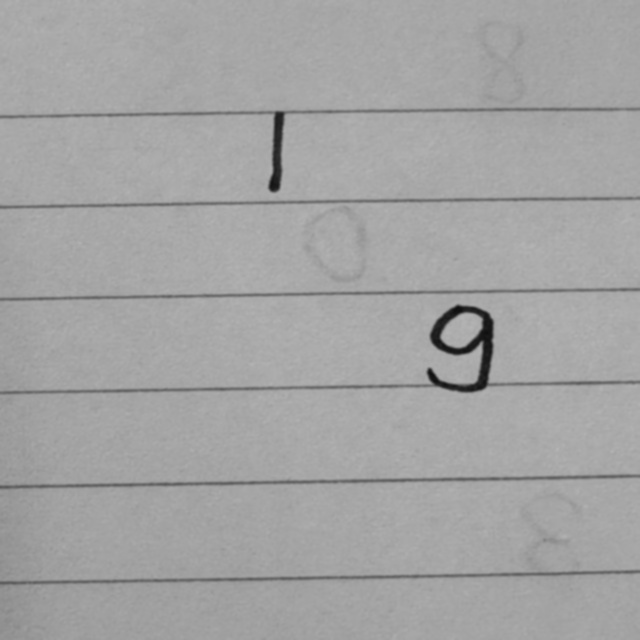 8
1
0
9